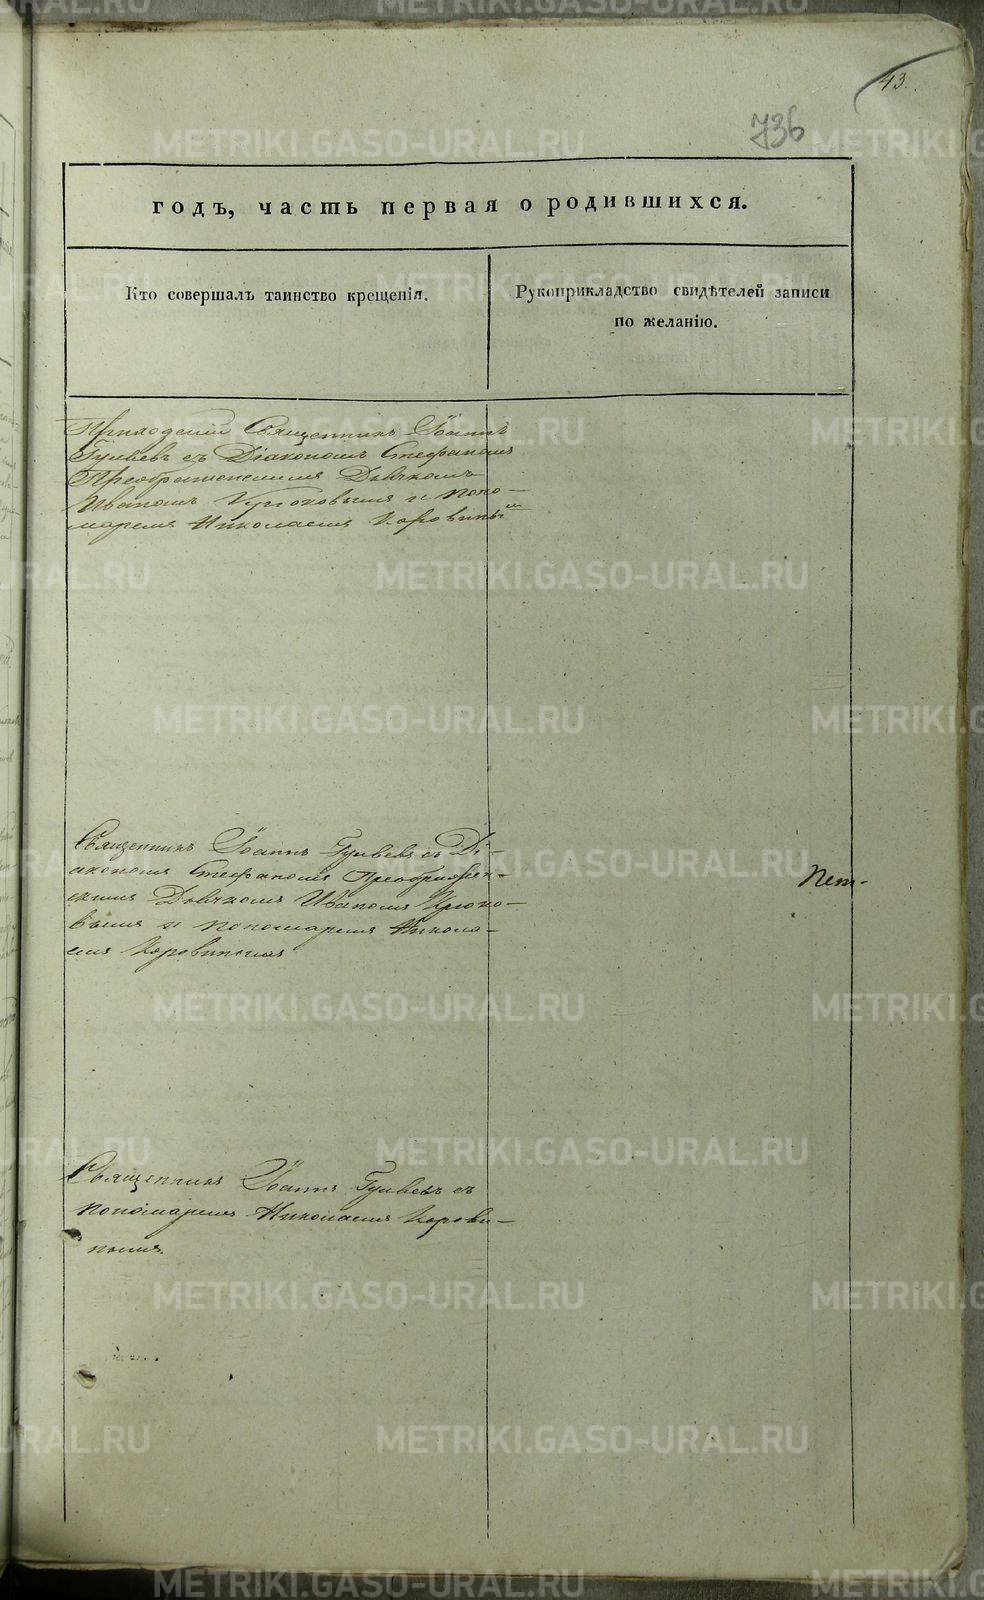 43.
736
годъ, часть первая о родившихся.
Кто совершалъ таинство крещенія.
Рукоприкладство свидѣтелей записи
по желанію.
Священникъ Іоаннъ
съ Діакономъ Стефаномъ
Преображенскимъ Дьячкомъ
Иваномъ Крюковымъ и Поно-
маремъ Николаемъ Коровинымъ
Священникъ Іоаннъ съ Ді-
акономъ Стефаномъ Преображен-
скимъ Дьячкомъ Иваномъ Крюко-
вымъ и Пономаремъ Никола-
емъ Коровинымъ
Священникъ Іоаннъ съ
Пономаремъ Николаемъ Корови-
нымъ.
METRIKI.GASO-URAL.RU